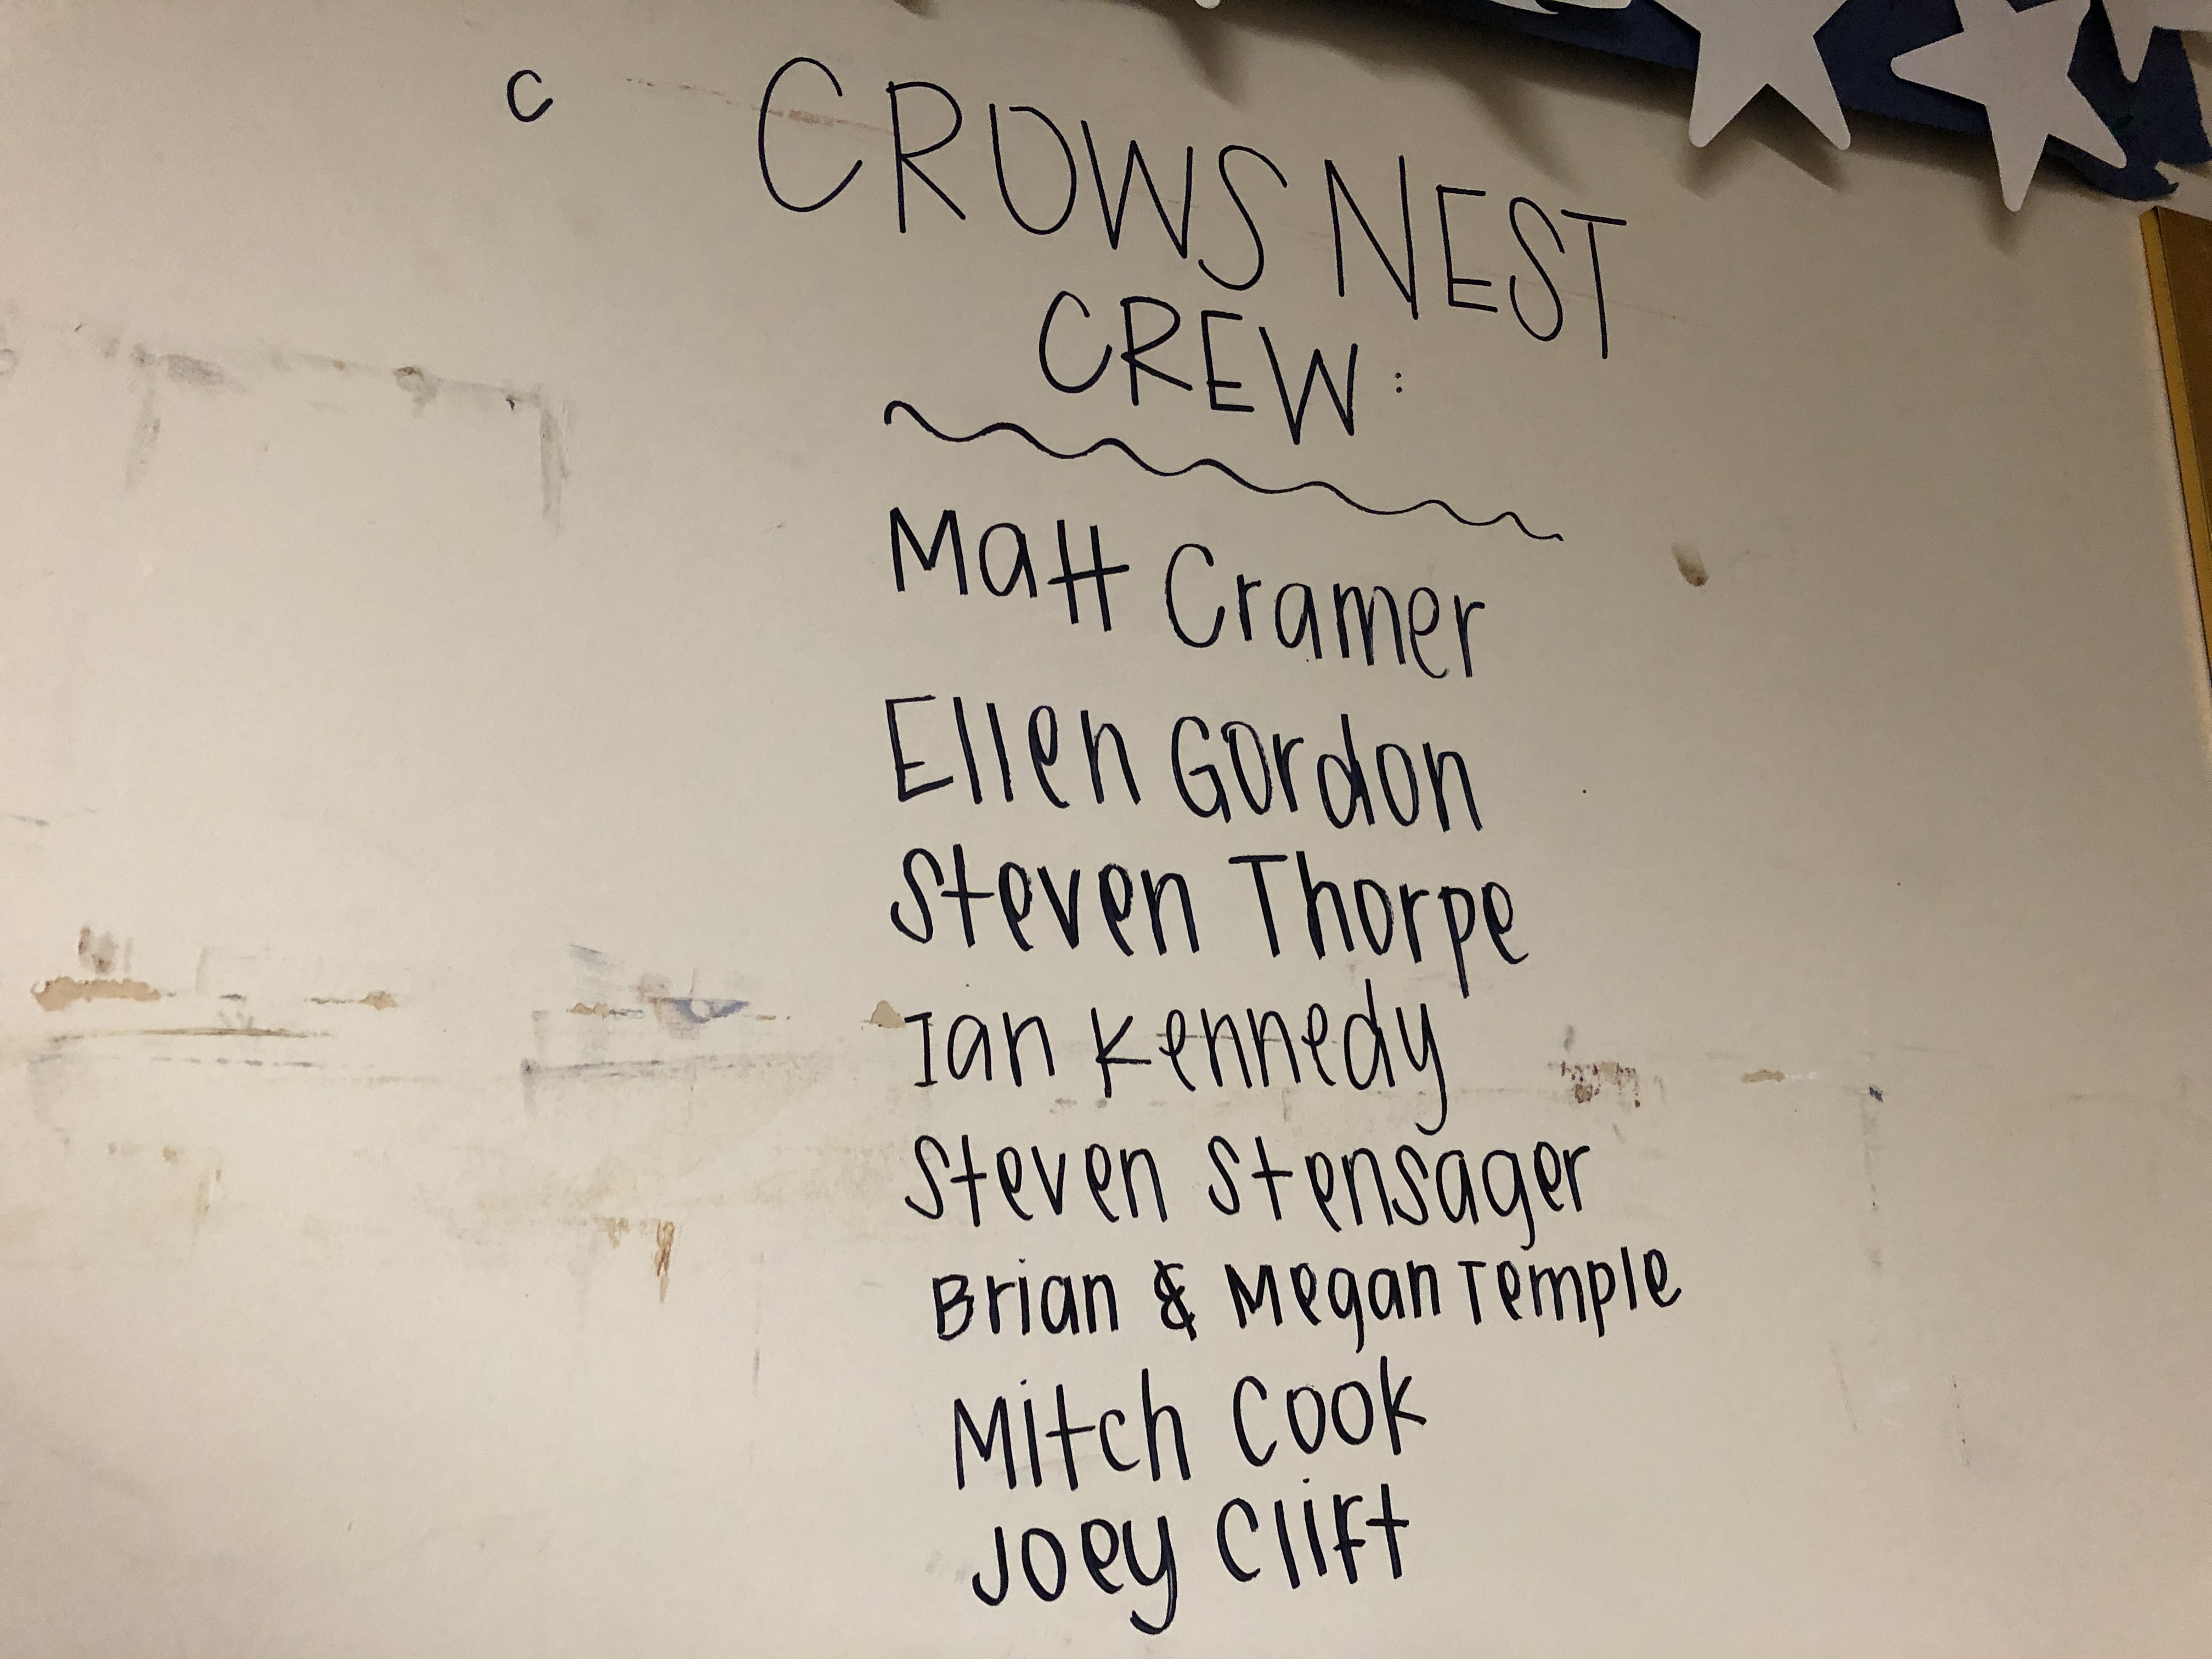 C
CROWS NEST
CREW:
Matt Cramer
Ellen Gordon
Steven Thorpe
Ian Kennedy
Steven Stensager
Brian & Megan Temple
Mitch Cook
Joey Clift